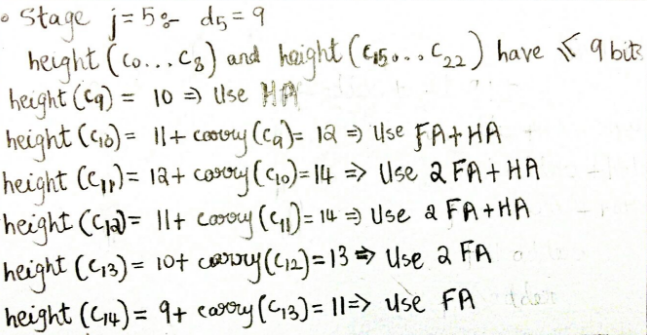 • Stage j=5:- d₅ = 9
height (c₀...c₈) and height (c₁₅...c₂₂) have ≤ 9 bits
height (c₉) = 10 => Use HA
height (c₁₀) = 11+ carry (c₉)= 12 => Use FA+HA
height (c₁₁)= 12+ carry (c₁₀)=14 => Use 2 FA+HA
height (c₁₂)= 11+ carry (c₁₁)=14 => Use 2 FA+HA
height (c₁₃)= 10+ carry (c₁₂)=13 => Use 2 FA
height (c₁₄)= 9+ carry (c₁₃)= 11=> Use FA